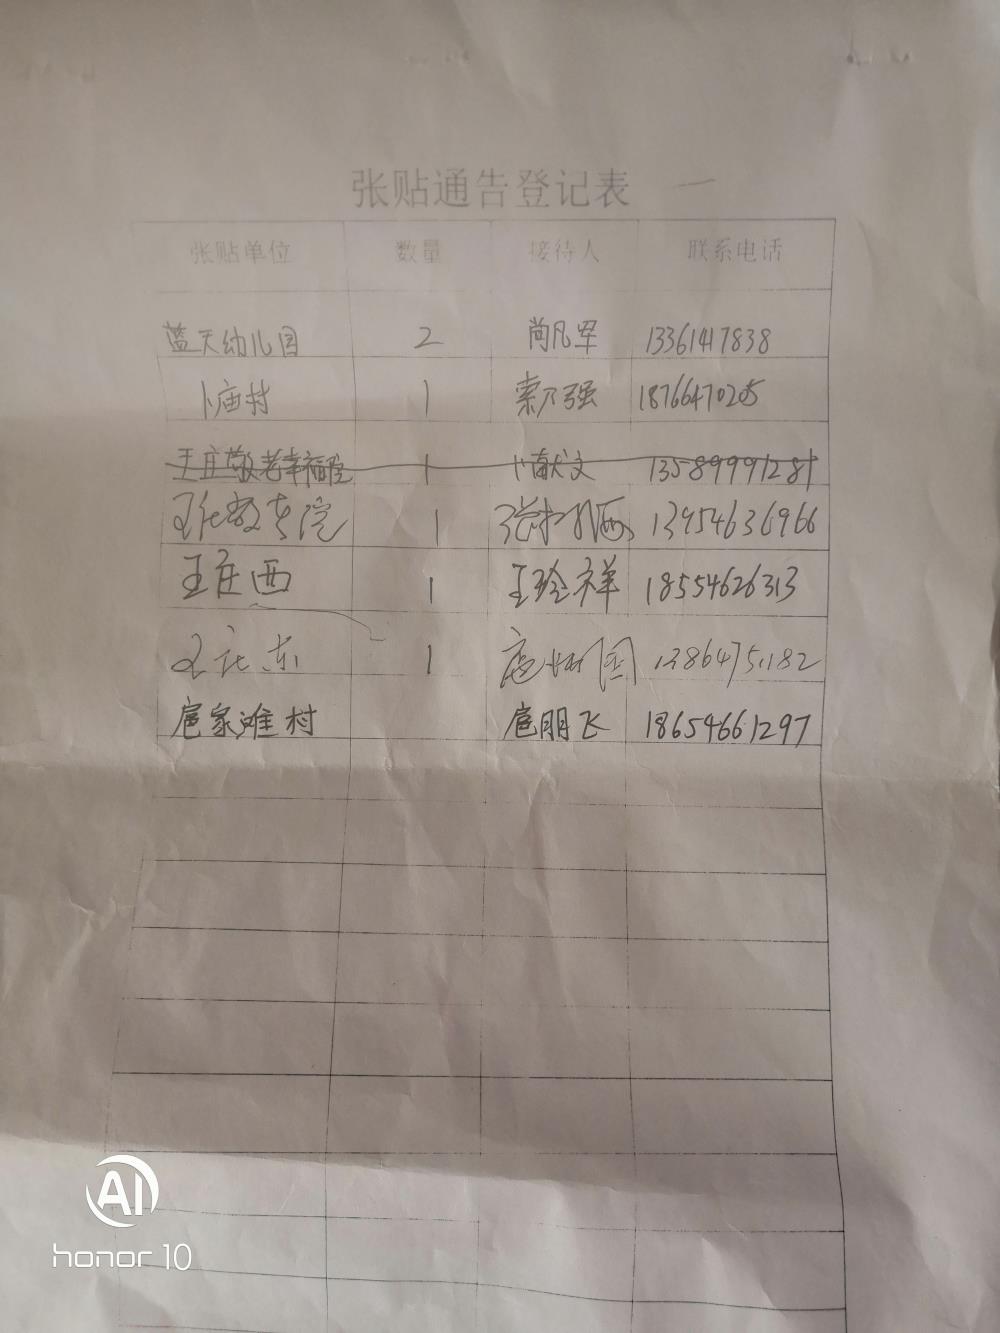 张贴通告登记表 一
张贴单位 数量 接待人 联系电话
蓝天幼儿园 2 尚凡军 13361417838
卜庙村 1 索乃强 18766470205
王庄敬老幸福院 1 卜献文 13589991281
王庄敬老院 1 13954636966
王庄西 1 王玲祥 18554626313
王庄东 1 13864751182
扈家滩村 扈朋飞 18654661297
AI
honor 10